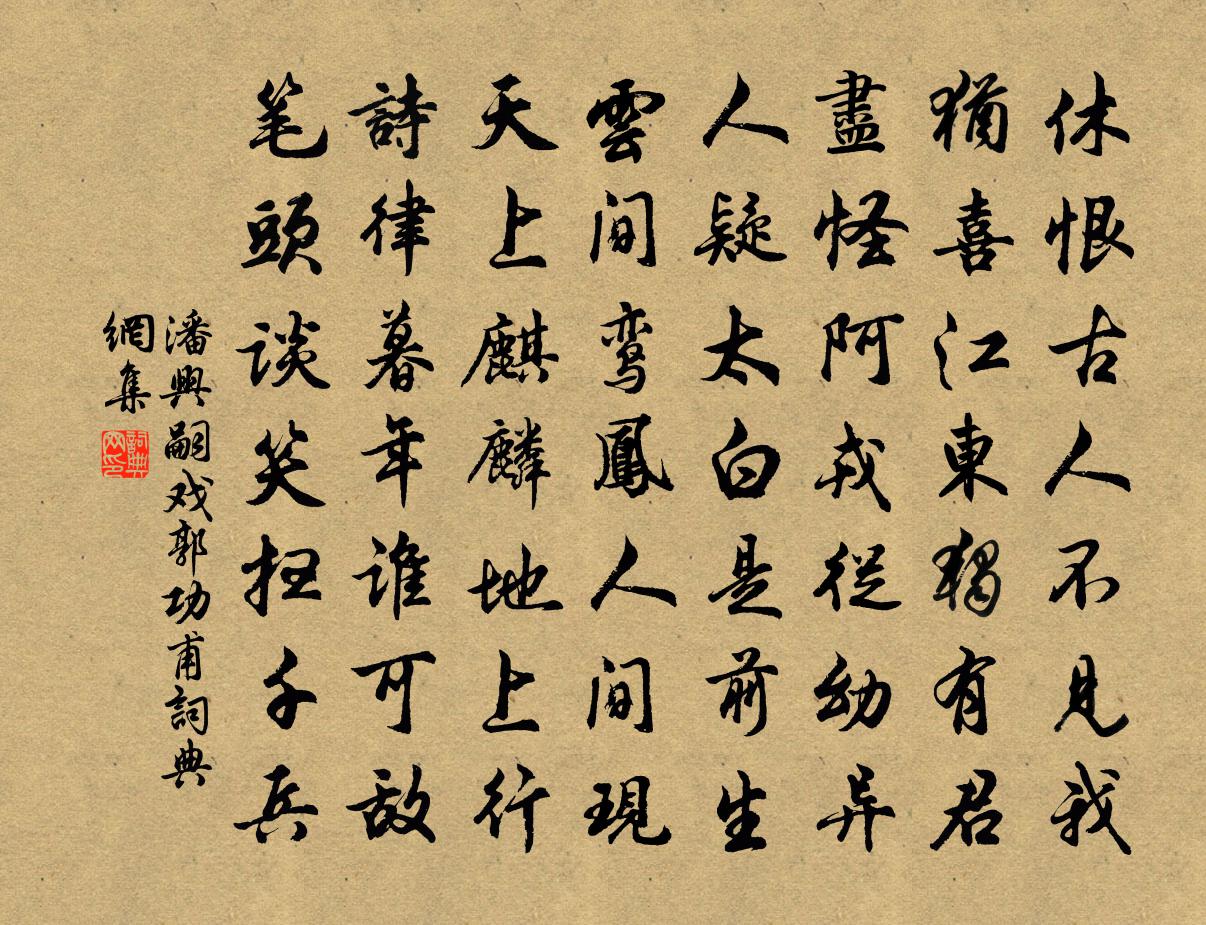 休恨古人不見我
猶喜江東獨有君
盡怪阿戎從幼异
人疑太白是前生
雲間鸾鳳人間現
天上麒麟地上行
詩律暮年誰可敌
笔頭談笑扫千兵
潘興嗣戏郭功甫詞典
網集
詞典
网印